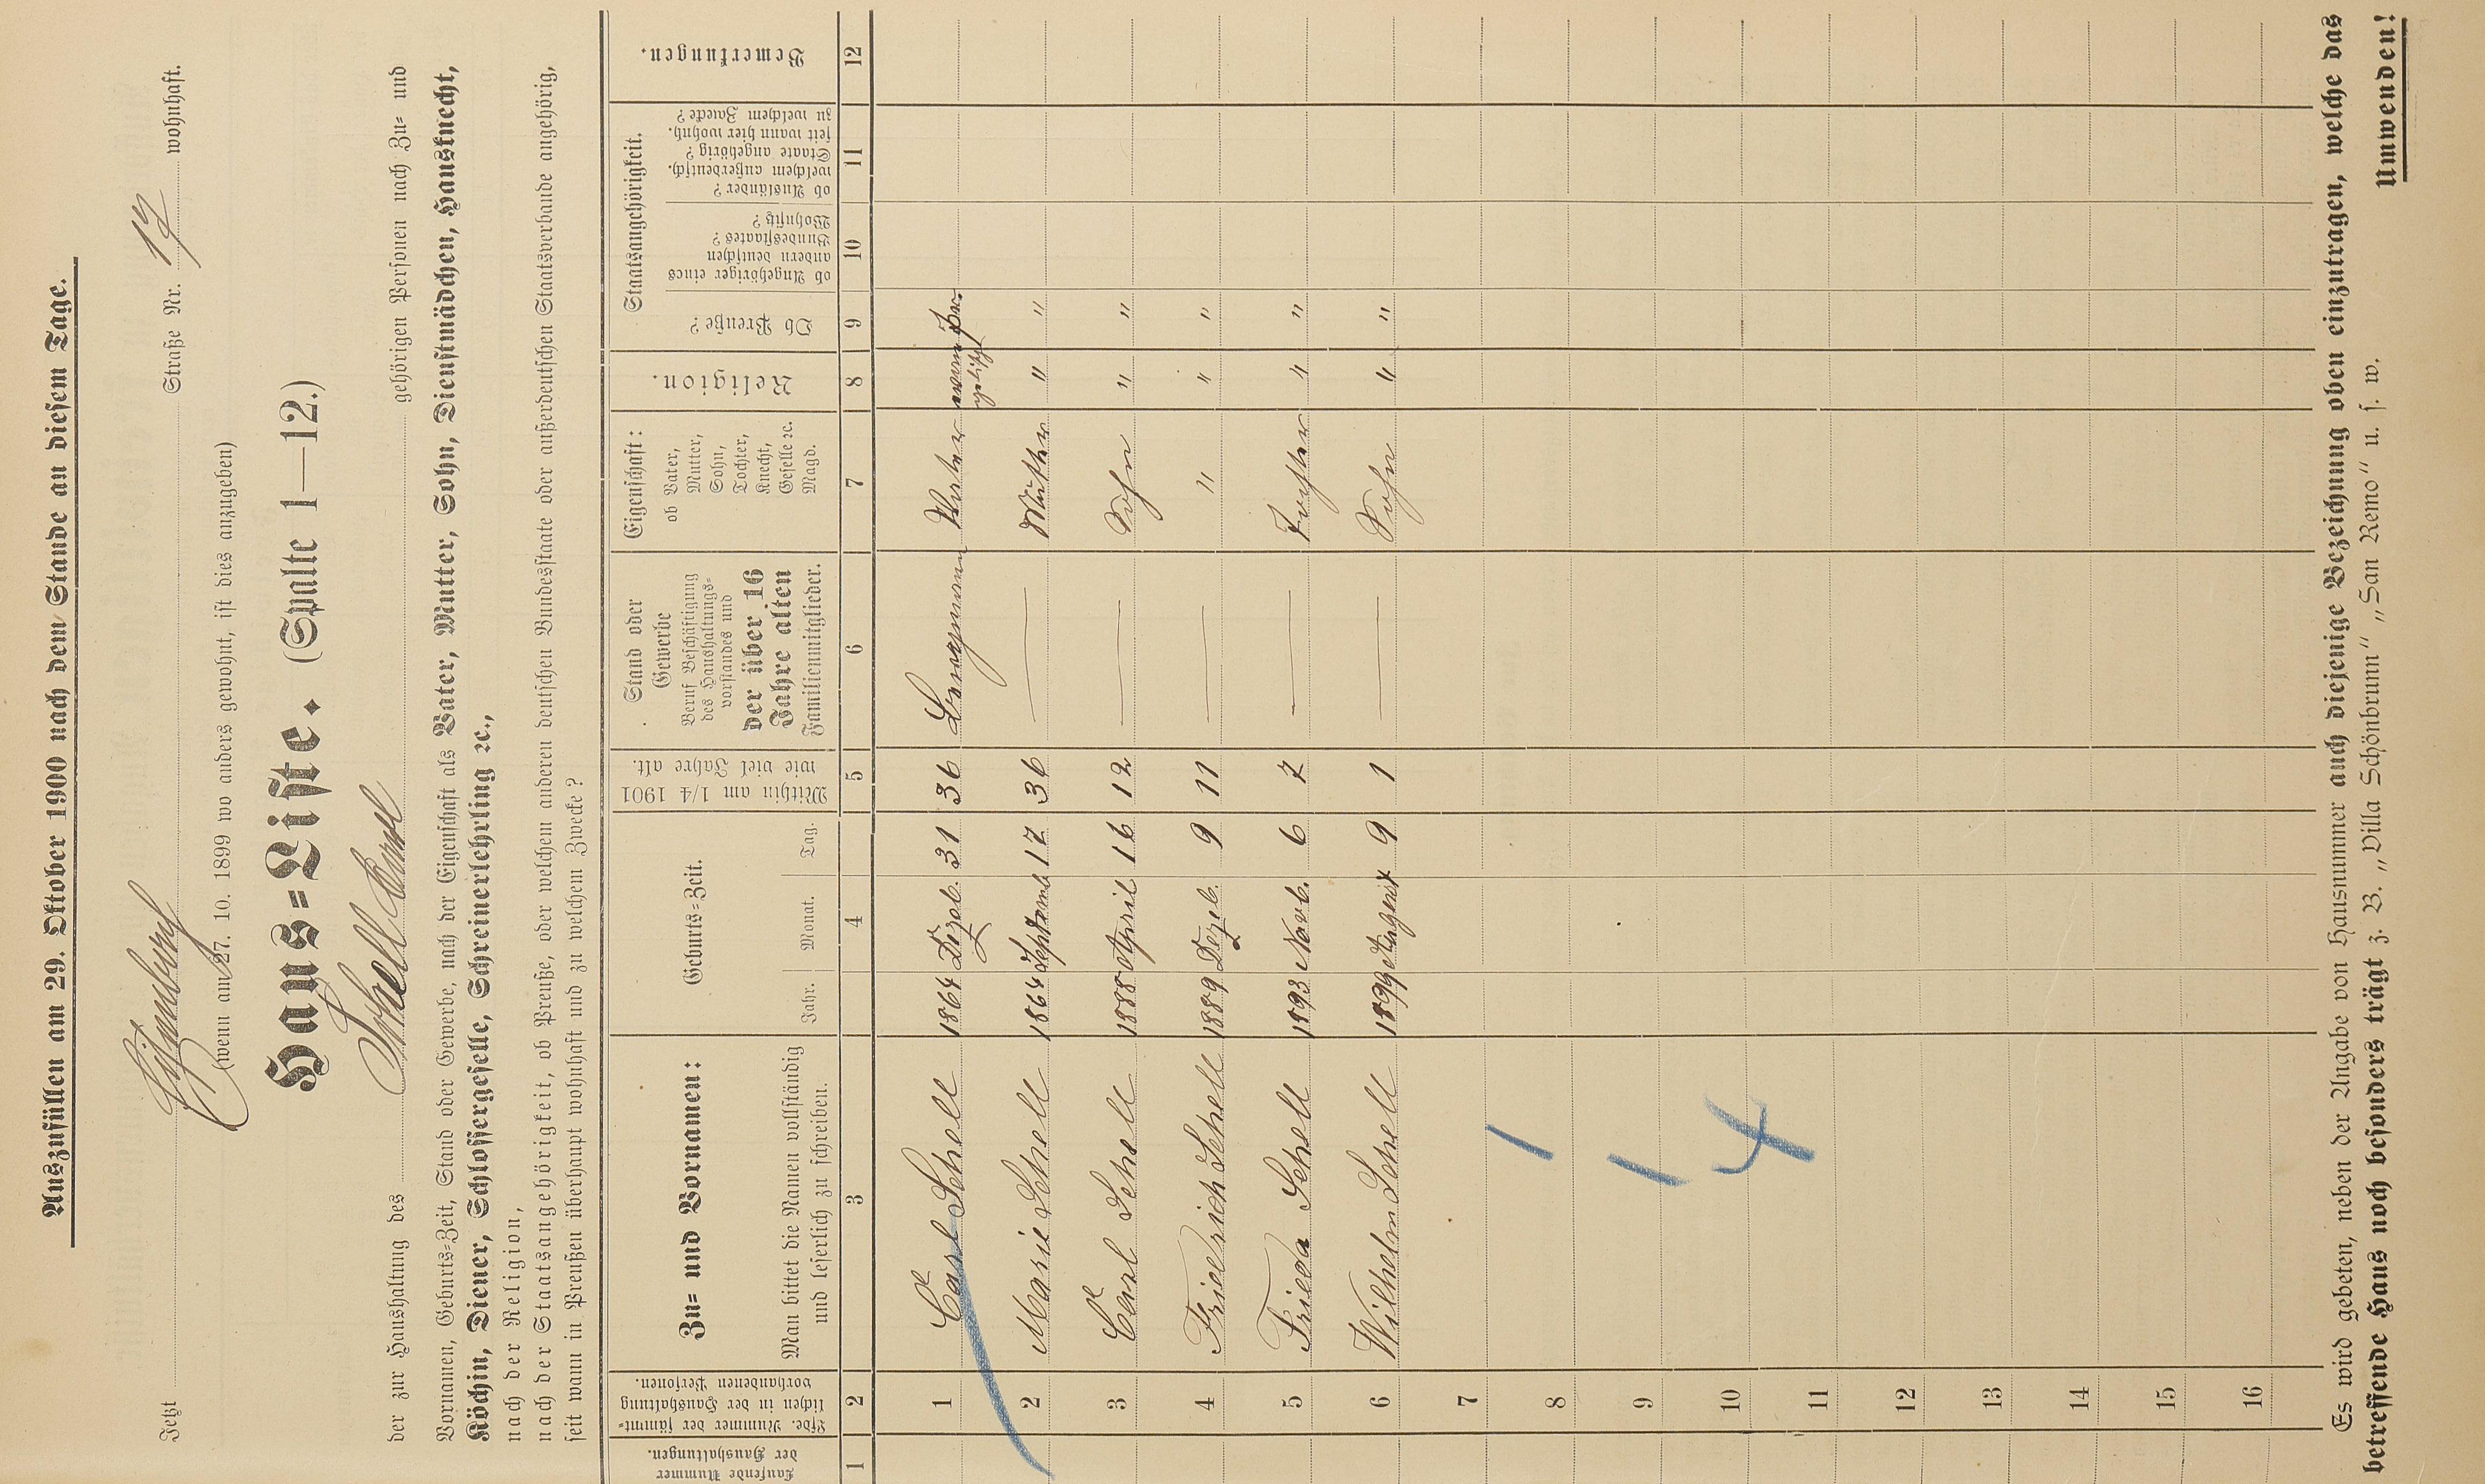 Auszufüllen am 29. Oktober 1900 nach dem Stande an diesem Tage.
Jetzt Straße Nr. 17 wohnhaft.
(wenn am 27. 10. 1899 wo anders gewohnt, ist dies anzugeben)
Haus=Liste. (Spalte 1—12.)
der zur Haushaltung des Schell Carl gehörigen Personen nach Zu= und
Vornamen, Geburts=Zeit, Stand oder Gewerbe, nach der Eigenschaft als Vater, Mutter, Sohn, Dienstmädchen, Hausknecht,
Köchin, Diener, Schlossergeselle, Schreinerlehrling ꝛc.,
nach der Religion,
nach der Staatsangehörigkeit, ob Preuße, oder welchem anderen deutschen Bundesstaate oder außerdeutschen Staatsverbande angehörig,
seit wann in Preußen überhaupt wohnhaft und zu welchem Zwecke?
Laufende Nummer der Haushaltungen.
Lfde. Nummer der sämmt=lichen in der Haushaltung vorhandenen Personen.
Zu= und Vornamen:
Man bittet die Namen vollständig
und leserlich zu schreiben.
Geburts=Zeit.
Jahr. Monat. Tag.
Mithin am 1/4 1901
wie viel Jahre alt.
Stand oder
Gewerbe
Beruf Beschäftigung
des Haushaltungs=
vorstandes und
der über 16
Jahre alten
Familienmitglieder.
Eigenschaft:
ob Vater,
Mutter,
Sohn,
Tochter,
Knecht,
Geselle ꝛc.
Magd.
Religion.
Staatsangehörigkeit.
Ob Preuße?
ob Angehöriger eines
andern deutschen
Bundesstaates?
Wohnsitz?
ob Ausländer?
welchem außerdeutsch.
Staate angehörig?
seit wann hier wohnh.
zu welchem Zwecke?
Bemerkungen.
1 2 3 4 5 6 7 8 9 10 11 12
1 Carl Schell 1864 Dezeb. 31 36 Bergmann Vater evangelisch Pr.
2 Marie Schell 1864 Septemb. 17 36 — Mutter " "
3 Carl Schell 1888 April 16 12 — Sohn " "
4 Friedrich Schell 1889 Dezeb. 9 11 — " " "
5 Frieda Schell 1893 Novb. 6 7 — Tochter " "
6 Wilhelm Schell 1899 August 9 1 — Sohn " "
7
8
9
10
11
12
13
14
15
16
1 1 4
Es wird gebeten, neben der Angabe von Hausnummer auch diejenige Bezeichnung oben einzutragen, welche das
betreffende Haus noch besonders trägt z. B. „Villa Schönbrunn" „San Remo" u. s. w.
Umwenden!